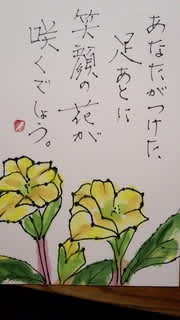 あなたがつけた
足あとに
笑顔の花が
咲くでしょう。